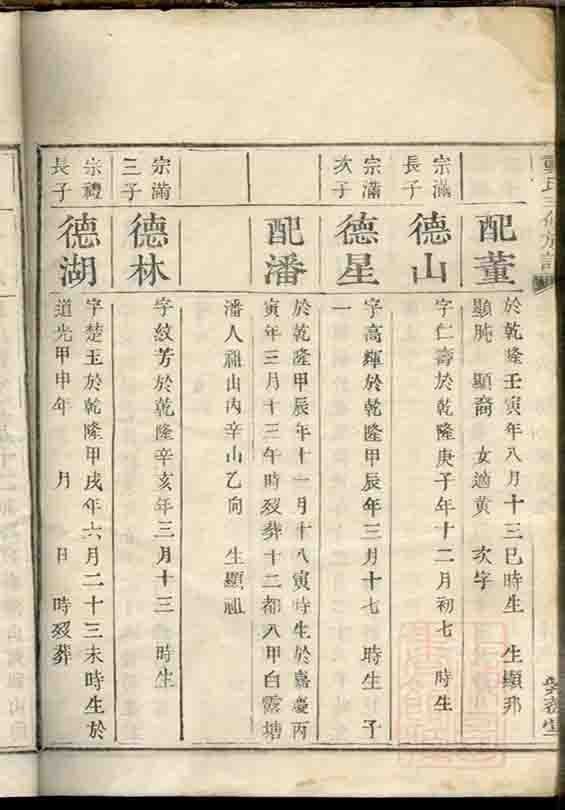 氏三修族譜
配董
於乾隆壬寅年八月十三巳時生 生顯邦
顯肫 顯裔 女適黃 次字
宗滿
長子
德山
字仁壽於乾隆庚子年十二月初七 時生
宗滿
次子
德星
字高輝於乾隆甲辰年三月十七 時生 子
一
配潘
於乾隆甲辰年十一月十八寅時生於嘉慶丙
寅年三月十三午時歿葬十二都八甲白露塘
潘人祖山內辛山乙向 生顯祖
宗滿
三子
德林
字紋芳於乾隆辛亥年三月十三 時生
宗禮
長子
德湖
字楚玉於乾隆甲戌年六月二十三未時生於
道光甲申年 月 日 時歿葬